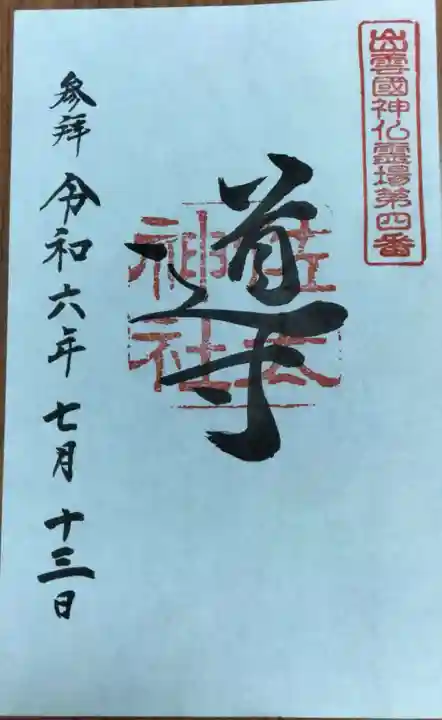 出雲國神仏霊場第四番
導
佐太
神社
参拜
令和六年七月十三日